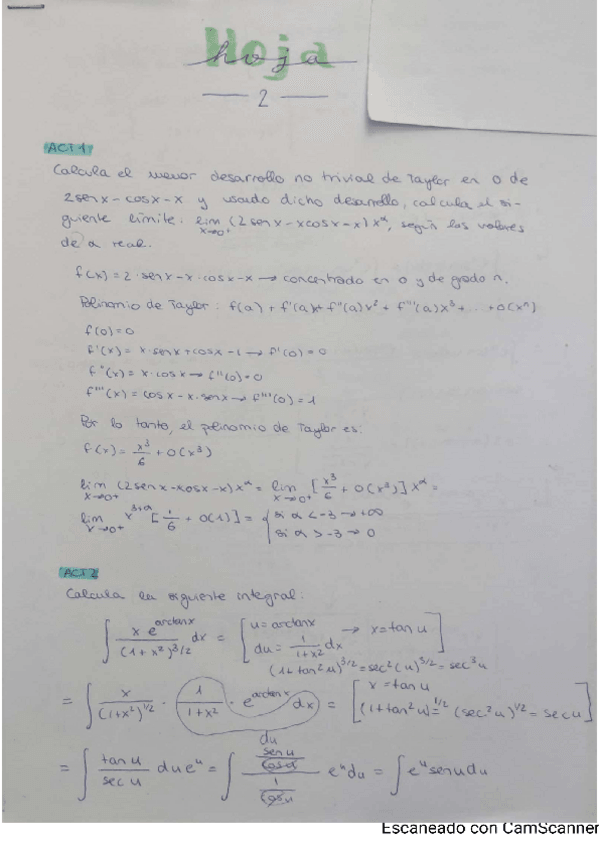 Hoja
hoja
2
ACT 1
Calcula el menor desarrollo no trivial de Taylor en 0 de
2senx-cosx-x y usando dicho desarrollo, calcula el si-
guiente límite: lim x→0⁺ (2senx-xcosx-x)x^α, según los valores
de α real.
f(x)=2·senx-x·cosx-x → concentrado en 0 y de grado n.
Polinomio de Taylor: f(a)+f'(a)x+f''(a)x²+f'''(a)x³+...+o(xⁿ)
f(0)=0
f'(x)=x·senx+cosx-1 → f'(0)=0
f''(x)=x·cosx → f''(0)=0
f'''(x)=cosx-x·senx → f'''(0)=1
Por lo tanto, el polinomio de Taylor es:
f(x)=x³/6+o(x³)
lim x→0⁺ (2senx-xcosx-x)x^α = lim x→0⁺ [x³/6+o(x³)]x^α =
lim x→0⁺ x^(3+α) [1/6+o(1)] = { si α<-3 → +∞
si α>-3 → 0
ACT 2
Calcula la siguiente integral:
∫ x e^(arctanx)/(1+x²)^(3/2) dx = [u=arctanx → x=tanu]
du=1/(1+x²) dx
(1+tan²u)^(3/2)=sec²(u)^(3/2)=sec³u
= ∫ x/(1+x²)^(1/2) · 1/(1+x²) · e^(arctanx) dx = [x=tanu
(1+tan²u)^(1/2)=(sec²u)^(1/2)=secu]
du
= ∫ tanu/secu du e^u = ∫ (senu/cosu)/(1/cosu) e^u du = ∫ e^u senu du
Escaneado con CamScanner